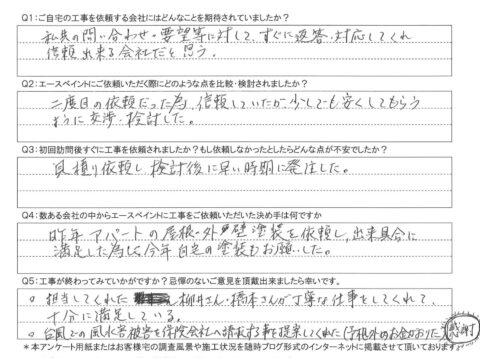 Q1:ご自宅の工事を依頼する会社にはどんなことを期待されていましたか?
私共の問い合わせ・要望等に対して、すぐに返答・対応してくれ
信頼出来る会社だと思う。
Q2:エースペイントにご依頼いただく際にどのような点を比較・検討されましたか?
二度目の依頼だった為、信頼していたが、少しでも安くしてもらう
ように交渉・検討した。
Q3:初回訪問後すぐに工事を依頼されましたか?もし依頼しなかったとしたらどんな点が不安でしたか?
見積り依頼し検討後に早い時期に発注した。
Q4:数ある会社の中からエースペイントに工事をご依頼いただいた決め手は何ですか
昨年アパートの屋根・外壁塗装を依頼し、出来具合に
満足した為、今年自宅の塗装もお願いした。
Q5:工事が終わってみていかがですか?忌憚のないご意見を頂戴出来ましたら幸いです。
○ 担当してくれた 柳井さん・橋本さんが丁寧な仕事をしてくれて、
十分に満足している。
○ 台風での風水害被害を保険会社へ請求する事を提案してくれた(予想外のお金がおりた) 感謝
*本アンケート用紙またはお客様宅の調査風景や施工状況を随時ブログ形式のインターネットに掲載させて頂いております。